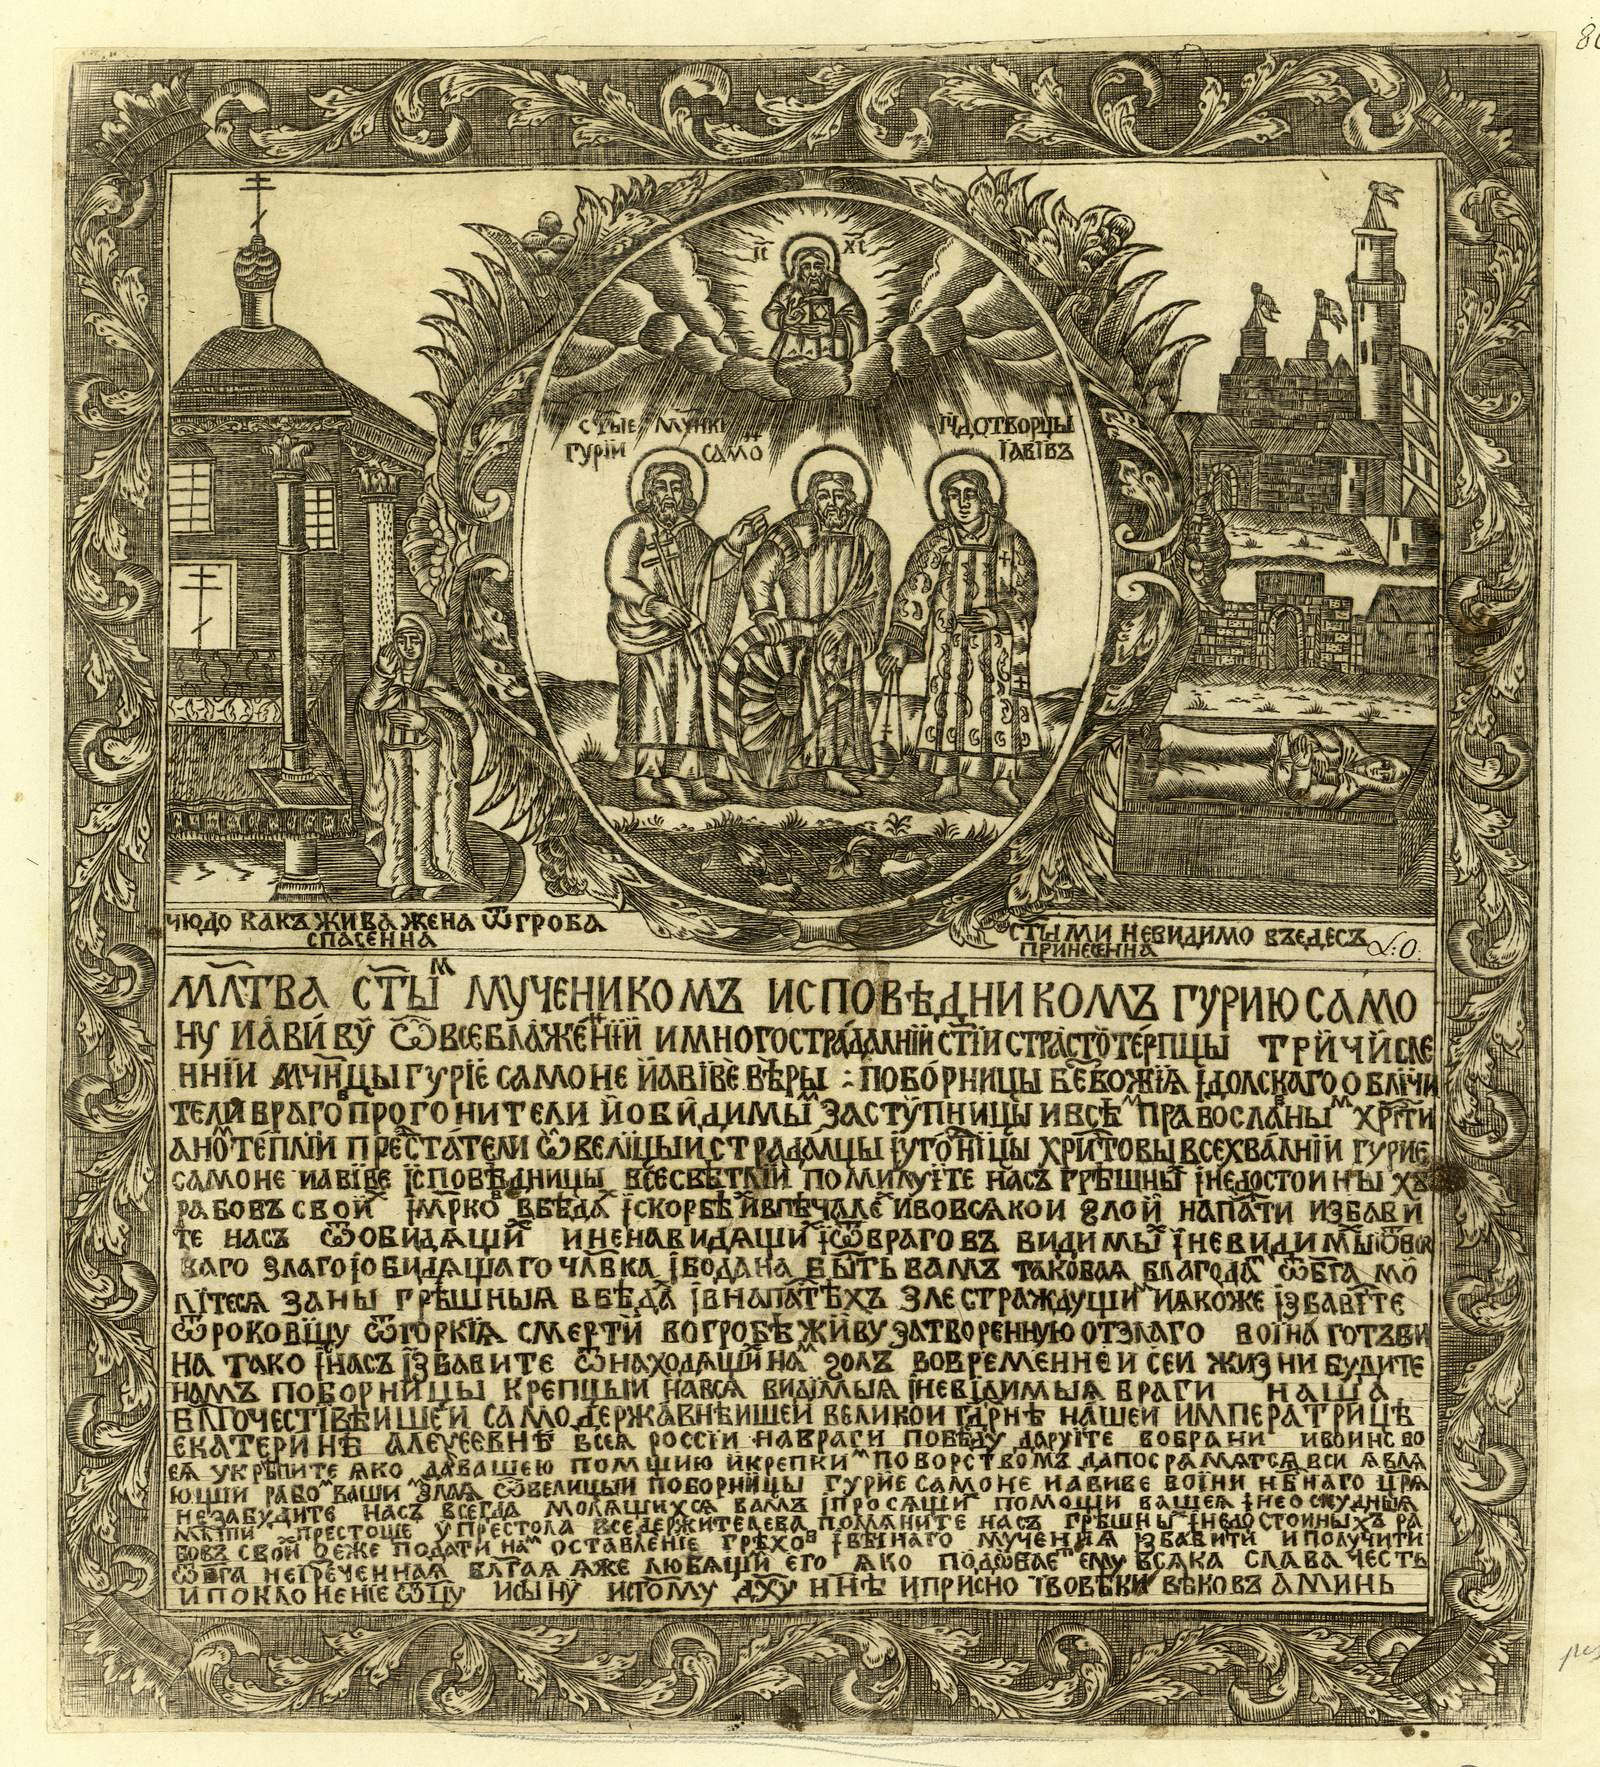 І҃С Х҃С
С҃ТЫЕ М҃УНКІ ІЧЮДОТВОРЦЫ
ГУРІЙ САМОН ІАВІВЪ
ЧЮДО КАКЪ ЖИВА ЖЕНА Ѿ ГРОБА
СПАСЕННА
С҃ТЫМИ НЕВИДИМО ВЪЕДЕСЪ
ПРИНЕСЕННА
L:O.
МЛ҃ТВА СТ҃ЫМ МУЧЕНИКОМЪ ИСПОВѢДНИКОМЪ ГУРИЮ САМО
НУ ИАВИВУ Ѽ ВСЕБЛАЖЕННІЙ И МНОГОСТРАДАЛНІЙ СТ҃ІИ СТРАСТОТЕРПЦЫ ТРИЧИСЛЕ
ННІЙ МЧ҃НЦЫ ГУРІЕ САМОНЕ ЙАВІВЕ ВѢРЫ : ПОБОРНИЦЫ БЕЗБОЖІЯ ІДОЛСКАГО ОБЛІЧИ
ТЕЛИ ВРАГОВ ПРОГОНИТЕЛИ Й ОБИДИМЫМ ЗАСТУПНИЦЫ И ВСѢМ ПРАВОСЛАВНЫМ ХРСТИ
АНОМ ТЕПЛІЙ ПРЕСТАТЕЛИ Ѽ ВЕЛІЦЫИ СТРАДАЛЦЫ ІУГОДНІЦЫ ХРИТОВЫ ВСЕХВАЛНІЙ ГУРИЕ
САМОНЕ ИАВІВЕ ІСПОВѢДНИЦЫ ВСЕСВѢТЛІЙ ПОМИЛУЇТЕ НАСЪ ГРѢШНЫ ІНЕДОСТОИНЫХЪ
РАБОВЪ СВОИХ ВБѢДАХ ІСКОРБѢХ ИВПЕЧАЛЕХ ИВОВСЯКОИ ЗЛОЙ НАПАСТИ ИЗБАВИ
ТЕ НАСЪ Ѿ ОБИДЯЩИХ И НЕНАВИДЯЩИХ І Ѿ ВРАГОВЪ ВИДИМЫХ ІНЕВИДИМЫХ Ѿ ВСЯ
КАГО ЗЛАГО ІОБИДЯЩАГО ЧЛ҃ВКА ІБО ДАНА БЫТЬ ВАМЪ ТАКОВАЯ БЛАГОДАТ Ѿ БГ҃А МО
ЛІТЕСЯ ЗАНЫ ГРѢШНЫЯ ВБѢДАХ ІВНАПАСТѢХЪ ЗЛЕ СТРАЖДУЩИМ ИЯКОЖЕ ІЗБАВІТЕ
ѾРОКОВІЦУ Ѿ ГОРКІЯ СМЕРТИ ВОГРОБѢ ЖИВУ ЗАТВОРЕННУЮ ОТ ЗЛАГО ВОІНА ГОТѲИ
НА ТАКО ІНАСЪ ІЗБАВИТЕ Ѿ НАХОДЯЩИХ НАМ ЗОЛЪ ВОВРЕМЕННЕИ СЕИ ЖИЗНИ БУДИТЕ
НАМЪ ПОБОРНИЦЫ КРЕПЦЫИ НАВСЯ ВИДІМЫЯ ІНЕВІДИМЫЯ ВРАГИ НАША
БЛ҃ГОЧЕСТІВѢИШЕИ САМОДЕРЖАВНѢИШЕЙ ВЕЛИКОИ ГД҃РНѢ НАШЕИ ИМПЕРАТРИЦѢ
ЕКАТЕРИНѢ АЛЕѮЕЕВНѢ ВСЕЯ РОССІИ НАВРАГИ ПОБѢДУ ДАРУІТЕ ВОБРАНИ ИВОИНСВО
ЕЯ УКРѢПИТЕ ЯКО ДА ВАШЕЮ ПОМЩИЮ ИКРЕПКИМ ПОБОРСТВОМЪ ДА ПОСРАМЯТСЯ ВСИ ЯВЛЯ
ЮЩИ РАБОМ ВАШИМ ЗЛАЯ Ѽ ВЕЛИЦЫИ ПОБОРНИЦЫ ГУРИЕ САМОНЕ ИАВИВЕ ВОІНИ НБ҃НАГО ЦР҃Я
НЕЗАБУДИТЕ НАСЪ ВСЕГДА МОЛЯЩИХСЯ ВАМЪ ІПРОСЯЩИ ПОМОЩИ ВАШЕЯ ІНЕОСКУДНЫЯ
МЛ҃СТИ ПРЕСТОЯЩЕ У ПРЕСТОЛА ВСЕДЕРЖИТЕЛЕВА ПОМЯНИТЕ НАСЪ ГРѢШНЫ ІНЕДОСТОИНЫХЪ РА
БОВЪ СВОЙ О ЕЖЕ ПОДАТИ НАМ ОСТАВЛЕНІЕ ГРѢХОВ ІВѢЧНАГО МУЧЕНІЯ ІЗБАВИТИ ИПОЛУЧИТИ
Ѿ БГ҃А НЕІЗРЕЧЕННАЯ БЛ҃ГАЯ ЯЖЕ ЛЮБЯЩИ ЕГО ЯКО ПОДОБАЕТ ЕМУ ВСЯКА СЛАВА ЧЕСТЬ
И ПОКЛОНЕНІЕ ѾЦУ ИСЫНУ ИСТ҃ОМУ ДХ҃У НН҃Ѣ ИПРИСНО ІВОВѢКИ ВѢКОВЪ АМИНЬ